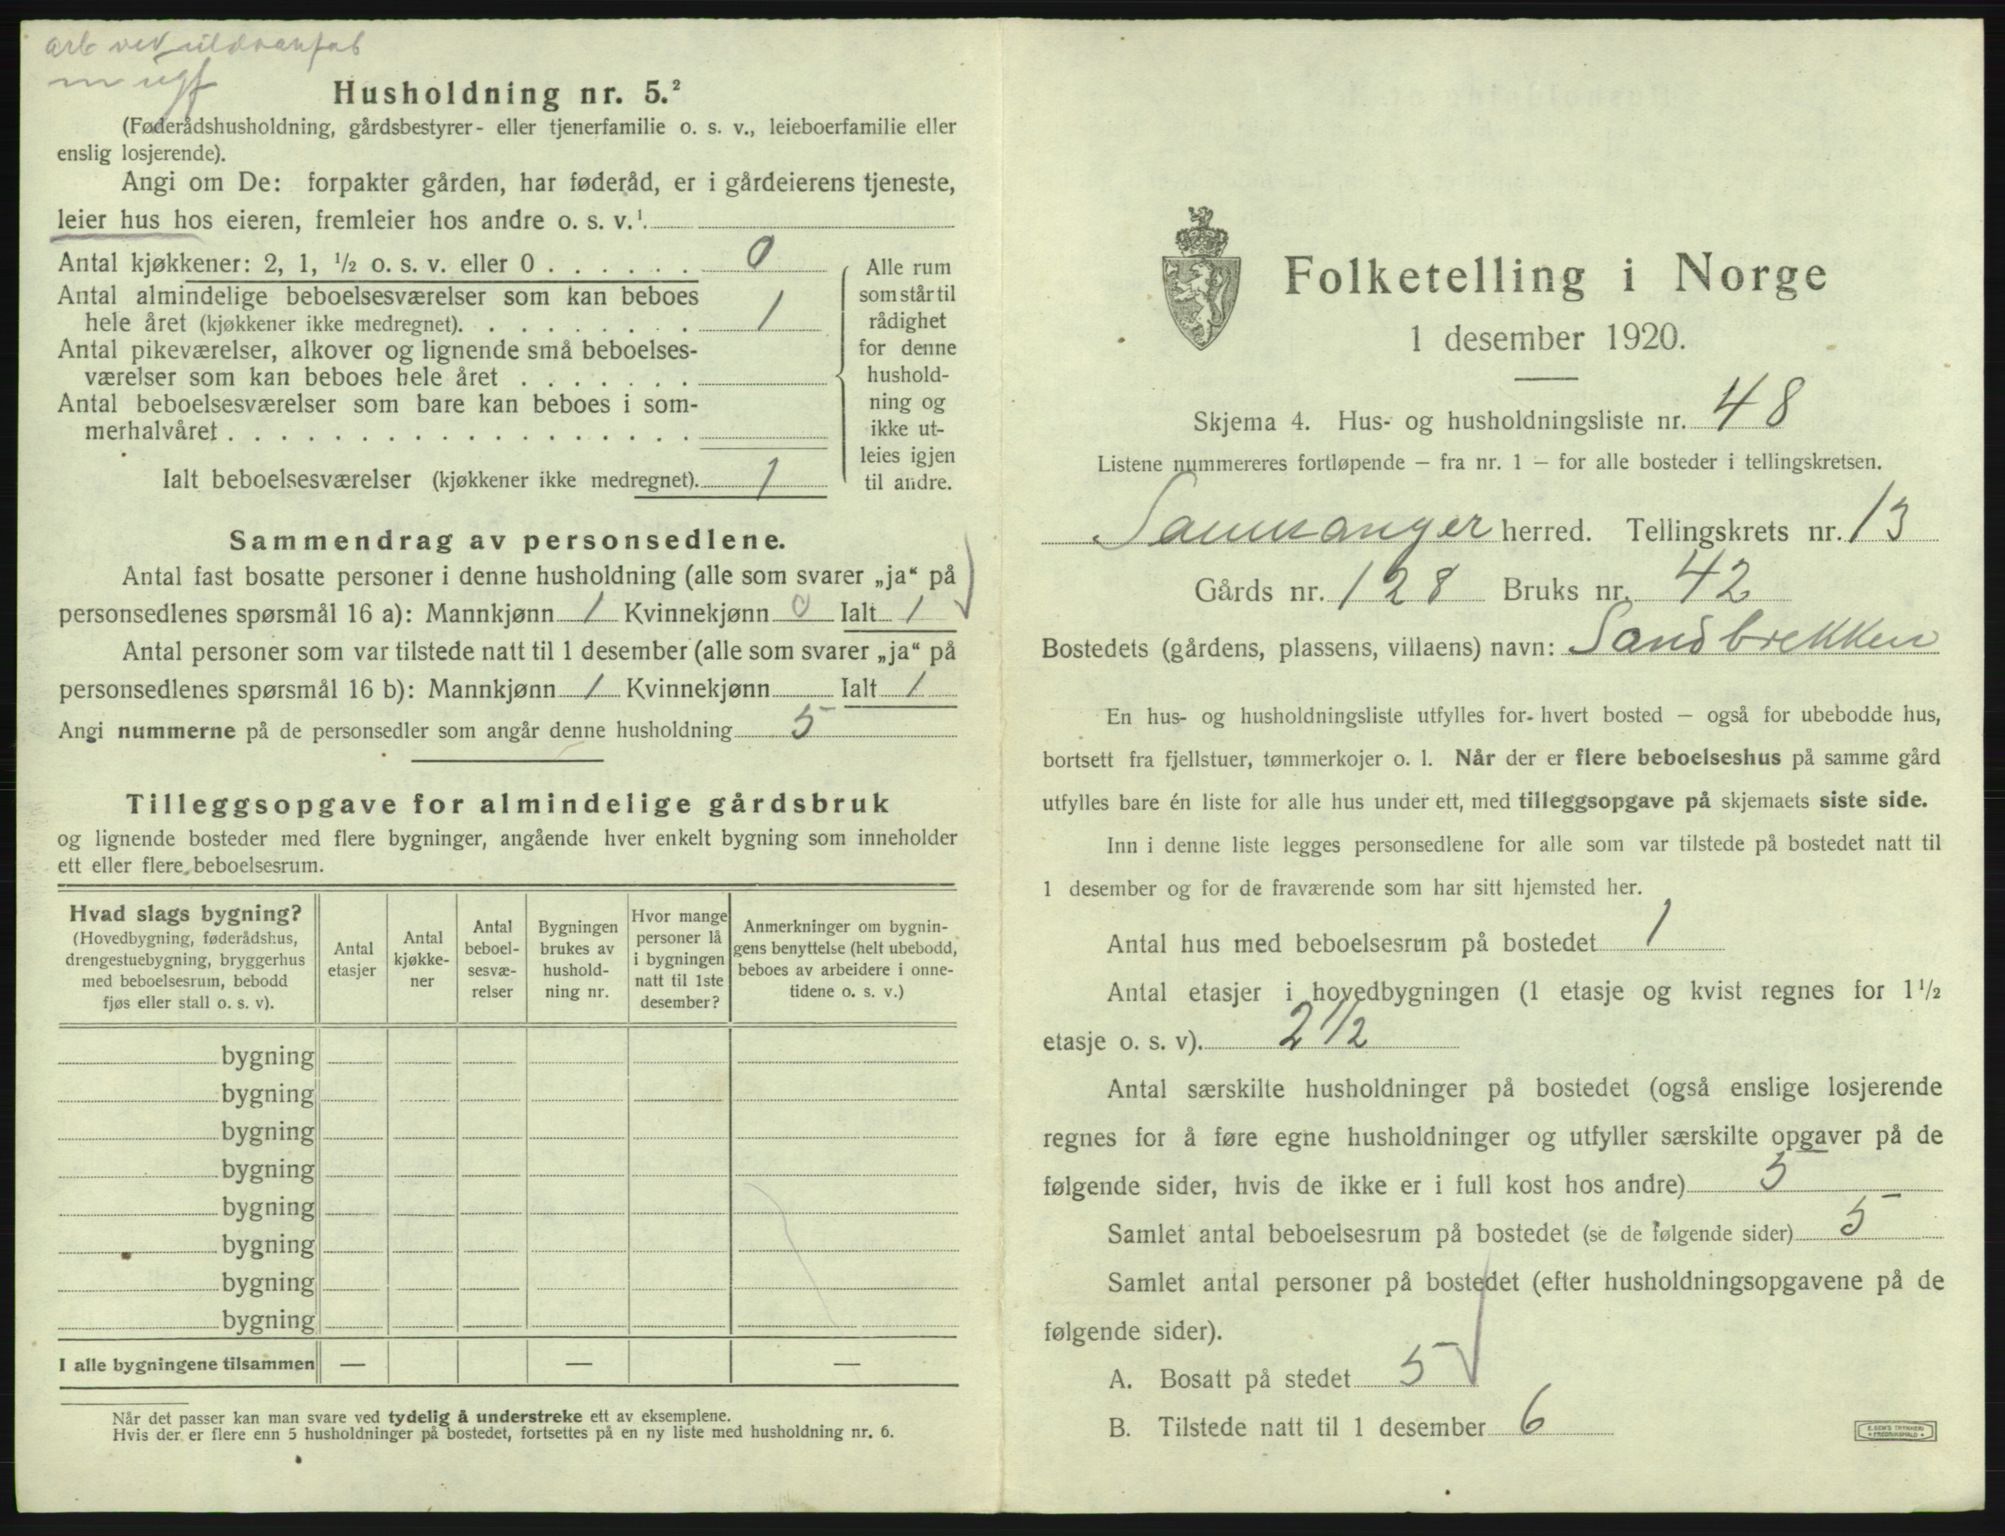 arb ved
m ugf
Husholdning nr. 5.²
(Føderådshusholdning, gårdsbestyrer- eller tjenerfamilie o. s. v., leieboerfamilie eller
enslig losjerende).
Angi om De: forpakter gården, har føderåd, er i gårdeierens tjeneste,
leier hus hos eieren, fremleier hos andre o. s. v.¹.
Antal kjøkkener: 2, 1, ½ o. s. v. eller 0 . . . . . . 0
Antal almindelige beboelsesværelser som kan beboes
hele året (kjøkkener ikke medregnet). . . . . . . . . 1
Antal pikeværelser, alkover og lignende små beboelses-
værelser som kan beboes hele året . . . . . . .
Antal beboelsesværelser som bare kan beboes i som-
merhalvåret . . . . . . . . . . . . . . . . . .
Ialt beboelsesværelser (kjøkkener ikke medregnet). 1
Alle rum
som står til
rådighet
for denne
hushold-
ning og
ikke ut-
leies igjen
til andre.
Sammendrag av personsedlene.
Antal fast bosatte personer i denne husholdning (alle som svarer „ja“ på
personsedlenes spørsmål 16 a): Mannkjønn 1 Kvinnekjønn 0 Ialt 1
Antal personer som var tilstede natt til 1 desember (alle som svarer „ja“ på
personsedlenes spørsmål 16 b): Mannkjønn 1 Kvinnekjønn Ialt 1
Angi nummerne på de personsedler som angår denne husholdning 5
Tilleggsopgave for almindelige gårdsbruk
og lignende bosteder med flere bygninger, angående hver enkelt bygning som inneholder
ett eller flere beboelsesrum.
Hvad slags bygning?
(Hovedbygning, føderådshus,
drengestuebygning, bryggerhus
med beboelsesrum, bebodd
fjøs eller stall o. s. v).
Antal
etasjer
Antal
kjøkke-
ner
Antal
beboel-
sesvæ-
relser
Bygningen
brukes av
hushold-
ning nr.
Hvor mange
personer lå
i bygningen
natt til 1ste
desember?
Anmerkninger om bygnin-
gens benyttelse (helt ubebodd,
beboes av arbeidere i onne-
tidene o. s. v.)
bygning
bygning
bygning
bygning
bygning
bygning
bygning
bygning
I alle bygningene tilsammen — — —
Når det passer kan man svare ved tydelig å understreke ett av eksemplene.
Hvis der er flere enn 5 husholdninger på bostedet, fortsettes på en ny liste med husholdning nr. 6.
Folketelling i Norge
1 desember 1920.
Skjema 4. Hus- og husholdningsliste nr. 48
Listene nummereres fortløpende — fra nr. 1 — for alle bosteder i tellingskretsen.
Samnanger herred. Tellingskrets nr. 13
Gårds nr. 128 Bruks nr. 42
Bostedets (gårdens, plassens, villaens) navn: Sandbrekken
En hus- og husholdningsliste utfylles for hvert bosted — også for ubebodde hus,
bortsett fra fjellstuer, tømmerkojer o. l. Når der er flere beboelseshus på samme gård
utfylles bare én liste for alle hus under ett, med tilleggsopgave på skjemaets siste side.
Inn i denne liste legges personsedlene for alle som var tilstede på bostedet natt til
1 desember og for de fraværende som har sitt hjemsted her.
Antal hus med beboelsesrum på bostedet 1
Antal etasjer i hovedbygningen (1 etasje og kvist regnes for 1½
etasje o. s. v). 2½
Antal særskilte husholdninger på bostedet (også enslige losjerende
regnes for å føre egne husholdninger og utfyller særskilte opgaver på de
følgende sider, hvis de ikke er i full kost hos andre) 5
Samlet antal beboelsesrum på bostedet (se de følgende sider) 5
Samlet antal personer på bostedet (efter husholdningsopgavene på de
følgende sider).
A. Bosatt på stedet 5
B. Tilstede natt til 1 desember 6
E. SEM'S TRYKKERI
FREDRIKSHALD